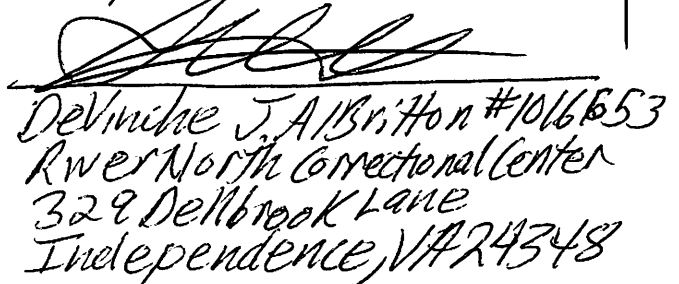 DeVinche J. AlBritton #1016653
RiverNorth Correctional Center
329 Dellbrook Lane
Independence, VA 24348